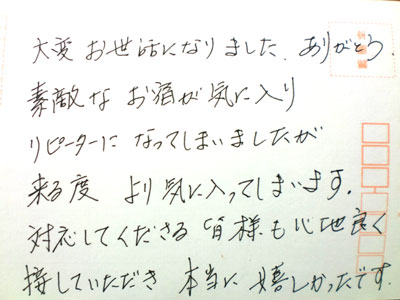 大変お世話になりました。ありがとう。
素敵なお宿が気に入り
リピーターになってしまいましたが
来る度より気に入ってしまいます。
対応してくださる皆様も心地良く
接していただき本当に嬉しかったです。